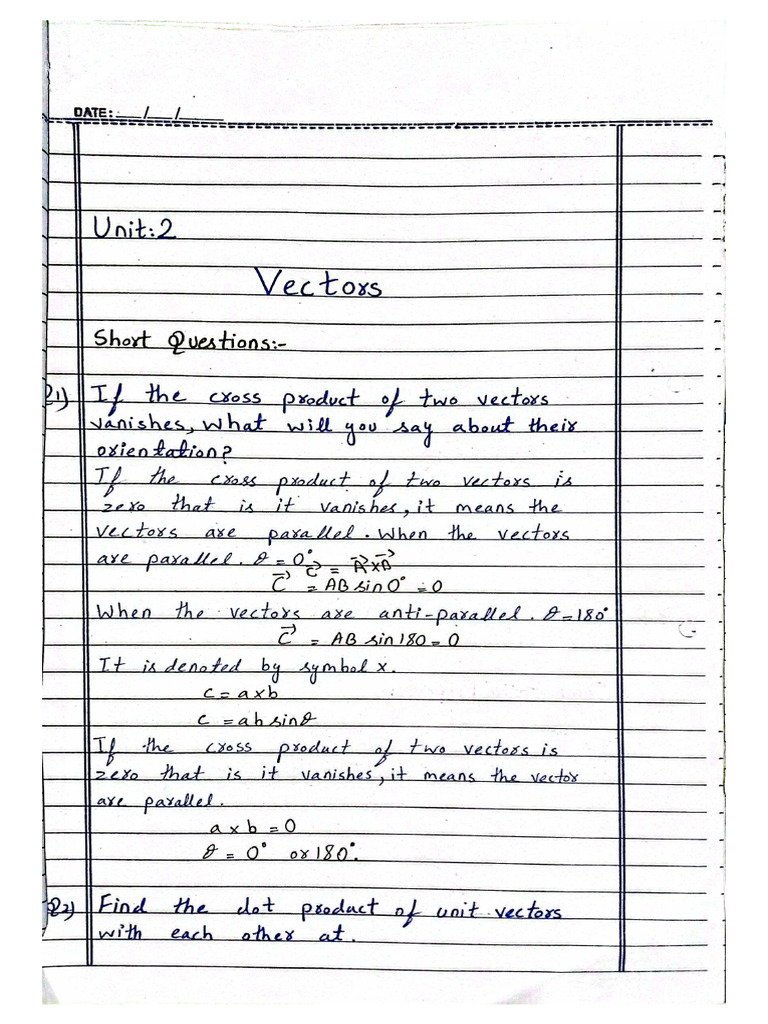 DATE: __/__/____
Unit:2
Vectors
Short Questions:-
Q1) If the cross product of two vectors
vanishes, what will you say about their
orientation?
If the cross product of two vectors is
zero that is it vanishes, it means the
vectors are parallel. When the vectors
are parallel. θ = 0°
C⃗ = A⃗ x B⃗
C⃗ = AB sin 0° = 0
When the vectors are anti-parallel. θ = 180°
C⃗ = AB sin 180 = 0
It is denoted by symbol x.
c = a x b
c = ab sinθ
If the cross product of two vectors is
zero that is it vanishes, it means the vector
are parallel.
a x b = 0
θ = 0° or 180°.
Q2) Find the dot product of unit vectors
with each other at.